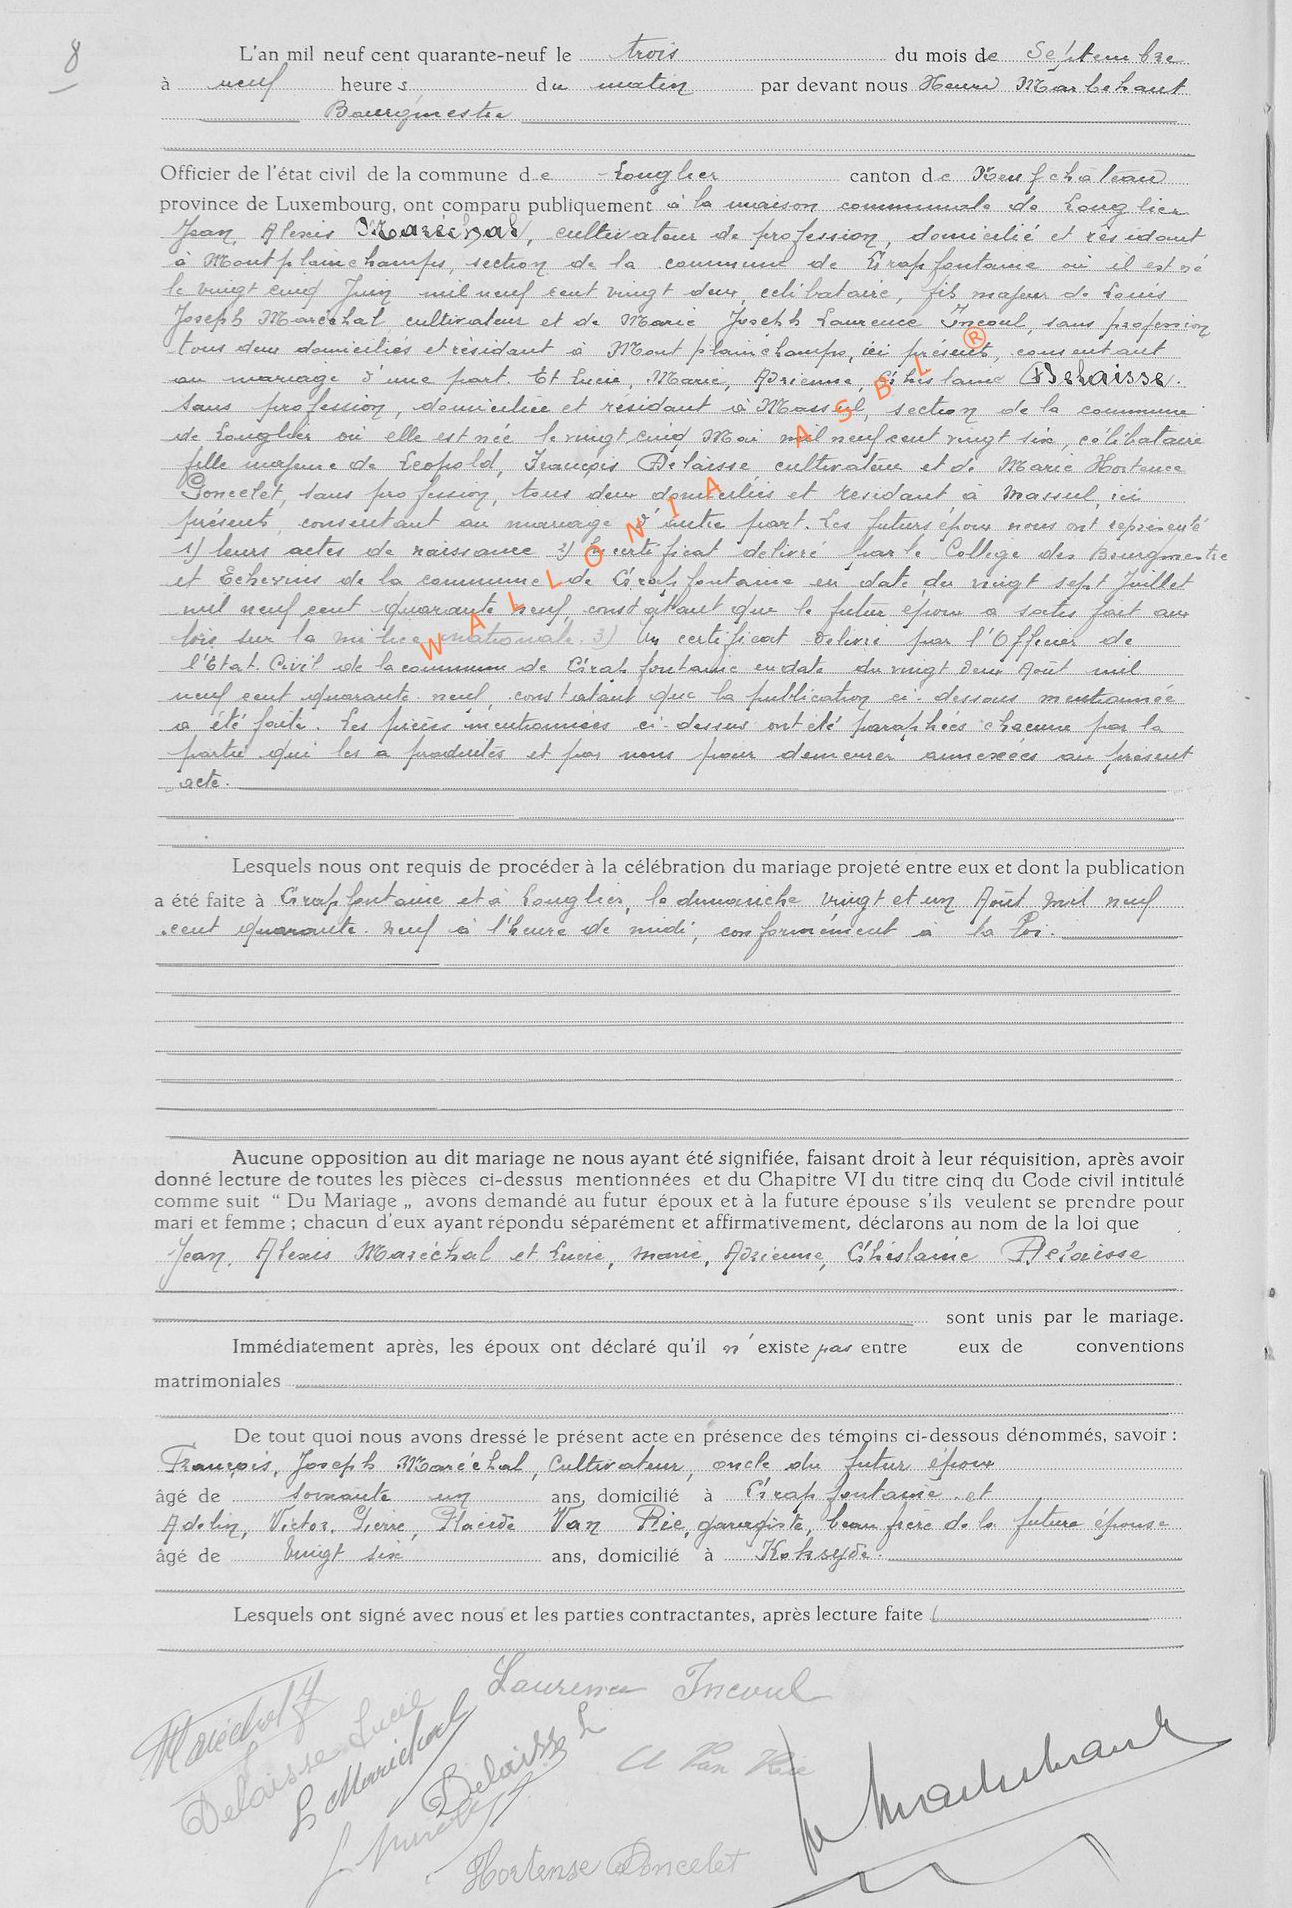 8
L'an mil neuf cent quarante-neuf le trois du mois de Septembre
à neuf heures du matin par devant nous Henri Marbehant
Bourgmestre
Officier de l'état civil de la commune de Longlier canton de Neufchâteau
province de Luxembourg, ont comparu publiquement à la maison communale de Longlier
Jean, Alexis Maréchal, cultivateur de profession, domicilié et résidant
à Montplainchamps, section de la commune de Grapfontaine où il est né
le vingt cinq Juin mil neuf cent vingt deux, célibataire, fils majeur de Louis
Joseph Maréchal cultivateur et de Marie Joseph Laurence Incoul, sans profession
tous deux domiciliés et résidant à Montplainchamps, ici présents, consentant
au mariage d'une part. Et Lucie, Marie, Adrienne, Ghislaine Delaisse.
sans profession, domiciliée et résidant à Massul, section de la commune
de Longlier où elle est née le vingt cinq Mai mil neuf cent vingt six, célibataire
fille majeure de Léopold, François Delaisse cultivateur et de Marie Hortence
Poncelet, sans profession, tous deux domiciliés et résidant à Massul, ici
présents, consentant au mariage d'autre part. Les futurs époux nous ont représenté
1) leurs actes de naissance 2) Un certificat délivré par le Collège des Bourgmestre
et Echevins de la commune de Grapfontaine en date du vingt sept Juillet
mil neuf cent quarante neuf, constatant que le futur époux a satisfait aux
lois sur la milice nationale. 3) Un certificat délivré par l'Officier de
l'Etat Civil de la commune de Grapfontaine en date du vingt deux Août mil
neuf cent quarante-neuf, constatant que la publication ci-dessous mentionnée
a été faite. Les pièces mentionnées ci-dessus ont été paraphées chacune par la
partie qui les a produites et par nous pour demeurer annexées au présent
acte.
WALLONIA ASBL ®
Lesquels nous ont requis de procéder à la célébration du mariage projeté entre eux et dont la publication
a été faite à Grapfontaine et à Longlier, le dimanche vingt et un Août mil neuf
cent quarante-neuf à l'heure de midi, conformément à la loi.
Aucune opposition au dit mariage ne nous ayant été signifiée, faisant droit à leur réquisition, après avoir
donné lecture de toutes les pièces ci-dessus mentionnées et du Chapitre VI du titre cinq du Code civil intitulé
comme suit “ Du Mariage „ avons demandé au futur époux et à la future épouse s'ils veulent se prendre pour
mari et femme ; chacun d'eux ayant répondu séparément et affirmativement, déclarons au nom de la loi que
Jean, Alexis Maréchal et Lucie, Marie, Adrienne, Ghislaine Delaisse
sont unis par le mariage.
Immédiatement après, les époux ont déclaré qu'il n'existe pas entre eux de conventions
matrimoniales
De tout quoi nous avons dressé le présent acte en présence des témoins ci-dessous dénommés, savoir :
François, Joseph Maréchal, Cultivateur, oncle du futur époux
âgé de soixante un ans, domicilié à Grapfontaine et
Adelin, Victor, Pierre, Placide Van Rie, garagiste, beau frère de la future épouse
âgé de vingt six ans, domicilié à Koksyde.
Lesquels ont signé avec nous et les parties contractantes, après lecture faite
Laurence Incoul
Maréchal J
Delaisse Lucie
L Maréchal
Delaisse L
A Van Rie
Hortense Poncelet